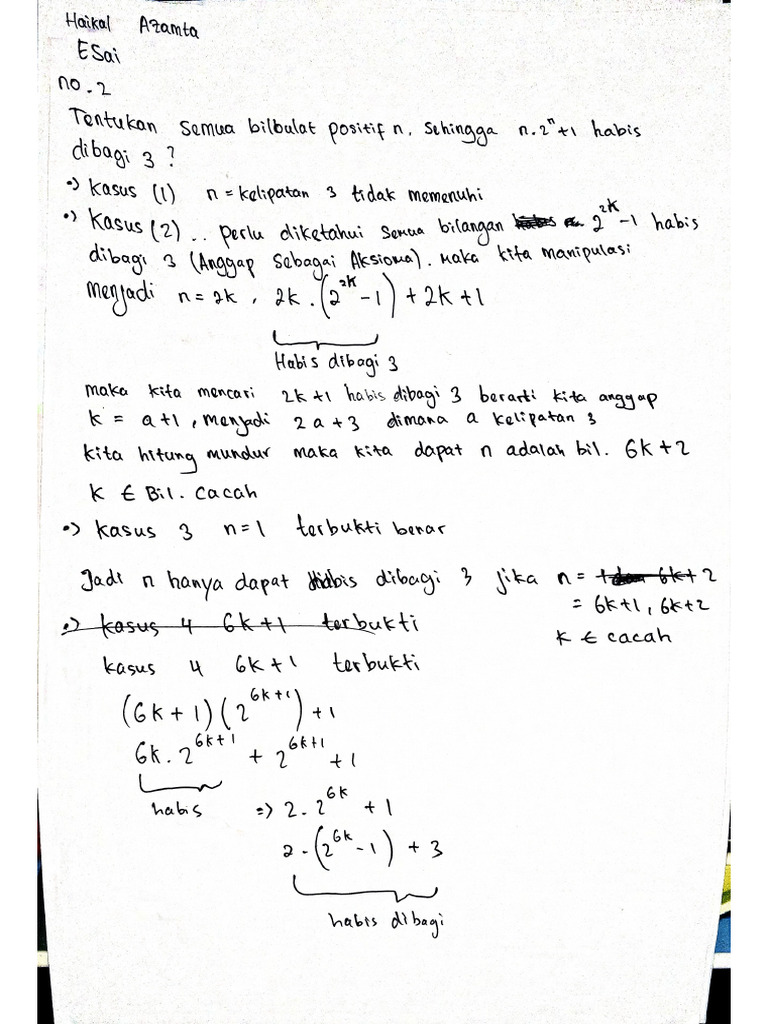 Haikal Azamta
ESai
no.2
Tentukan Semua bilbulat positif n. Sehingga n.2ⁿ+1 habis
dibagi 3 ?
•) Kasus (1) n = kelipatan 3 tidak memenuhi
•) Kasus (2) .. perlu diketahui semua bilangan 2^{2K} -1 habis
dibagi 3 (Anggap Sebagai Aksioma). Maka kita manipulasi
Menjadi n = 2k , 2k . (2^{2k} -1) + 2k +1
Habis dibagi 3
Maka kita mencari 2k+1 habis dibagi 3 berarti kita anggap
k = a+1 , menjadi 2a+3 dimana a kelipatan 3
kita hitung mundur maka kita dapat n adalah bil. 6k+2
k ∈ Bil. Cacah
•) kasus 3 n=1 terbukti benar
Jadi n hanya dapat dibagi 3 jika n = 1 dan 6k+2
= 6k+1, 6k+2
k ∈ cacah
•) kasus 4 6k+1 terbukti
kasus 4 6k+1 terbukti
(6k+1)(2^{6k+1}) +1
6k.2^{6k+1} + 2^{6k+1} +1
habis =) 2.2^{6k} +1
2.(2^{6k} -1) + 3
habis dibagi